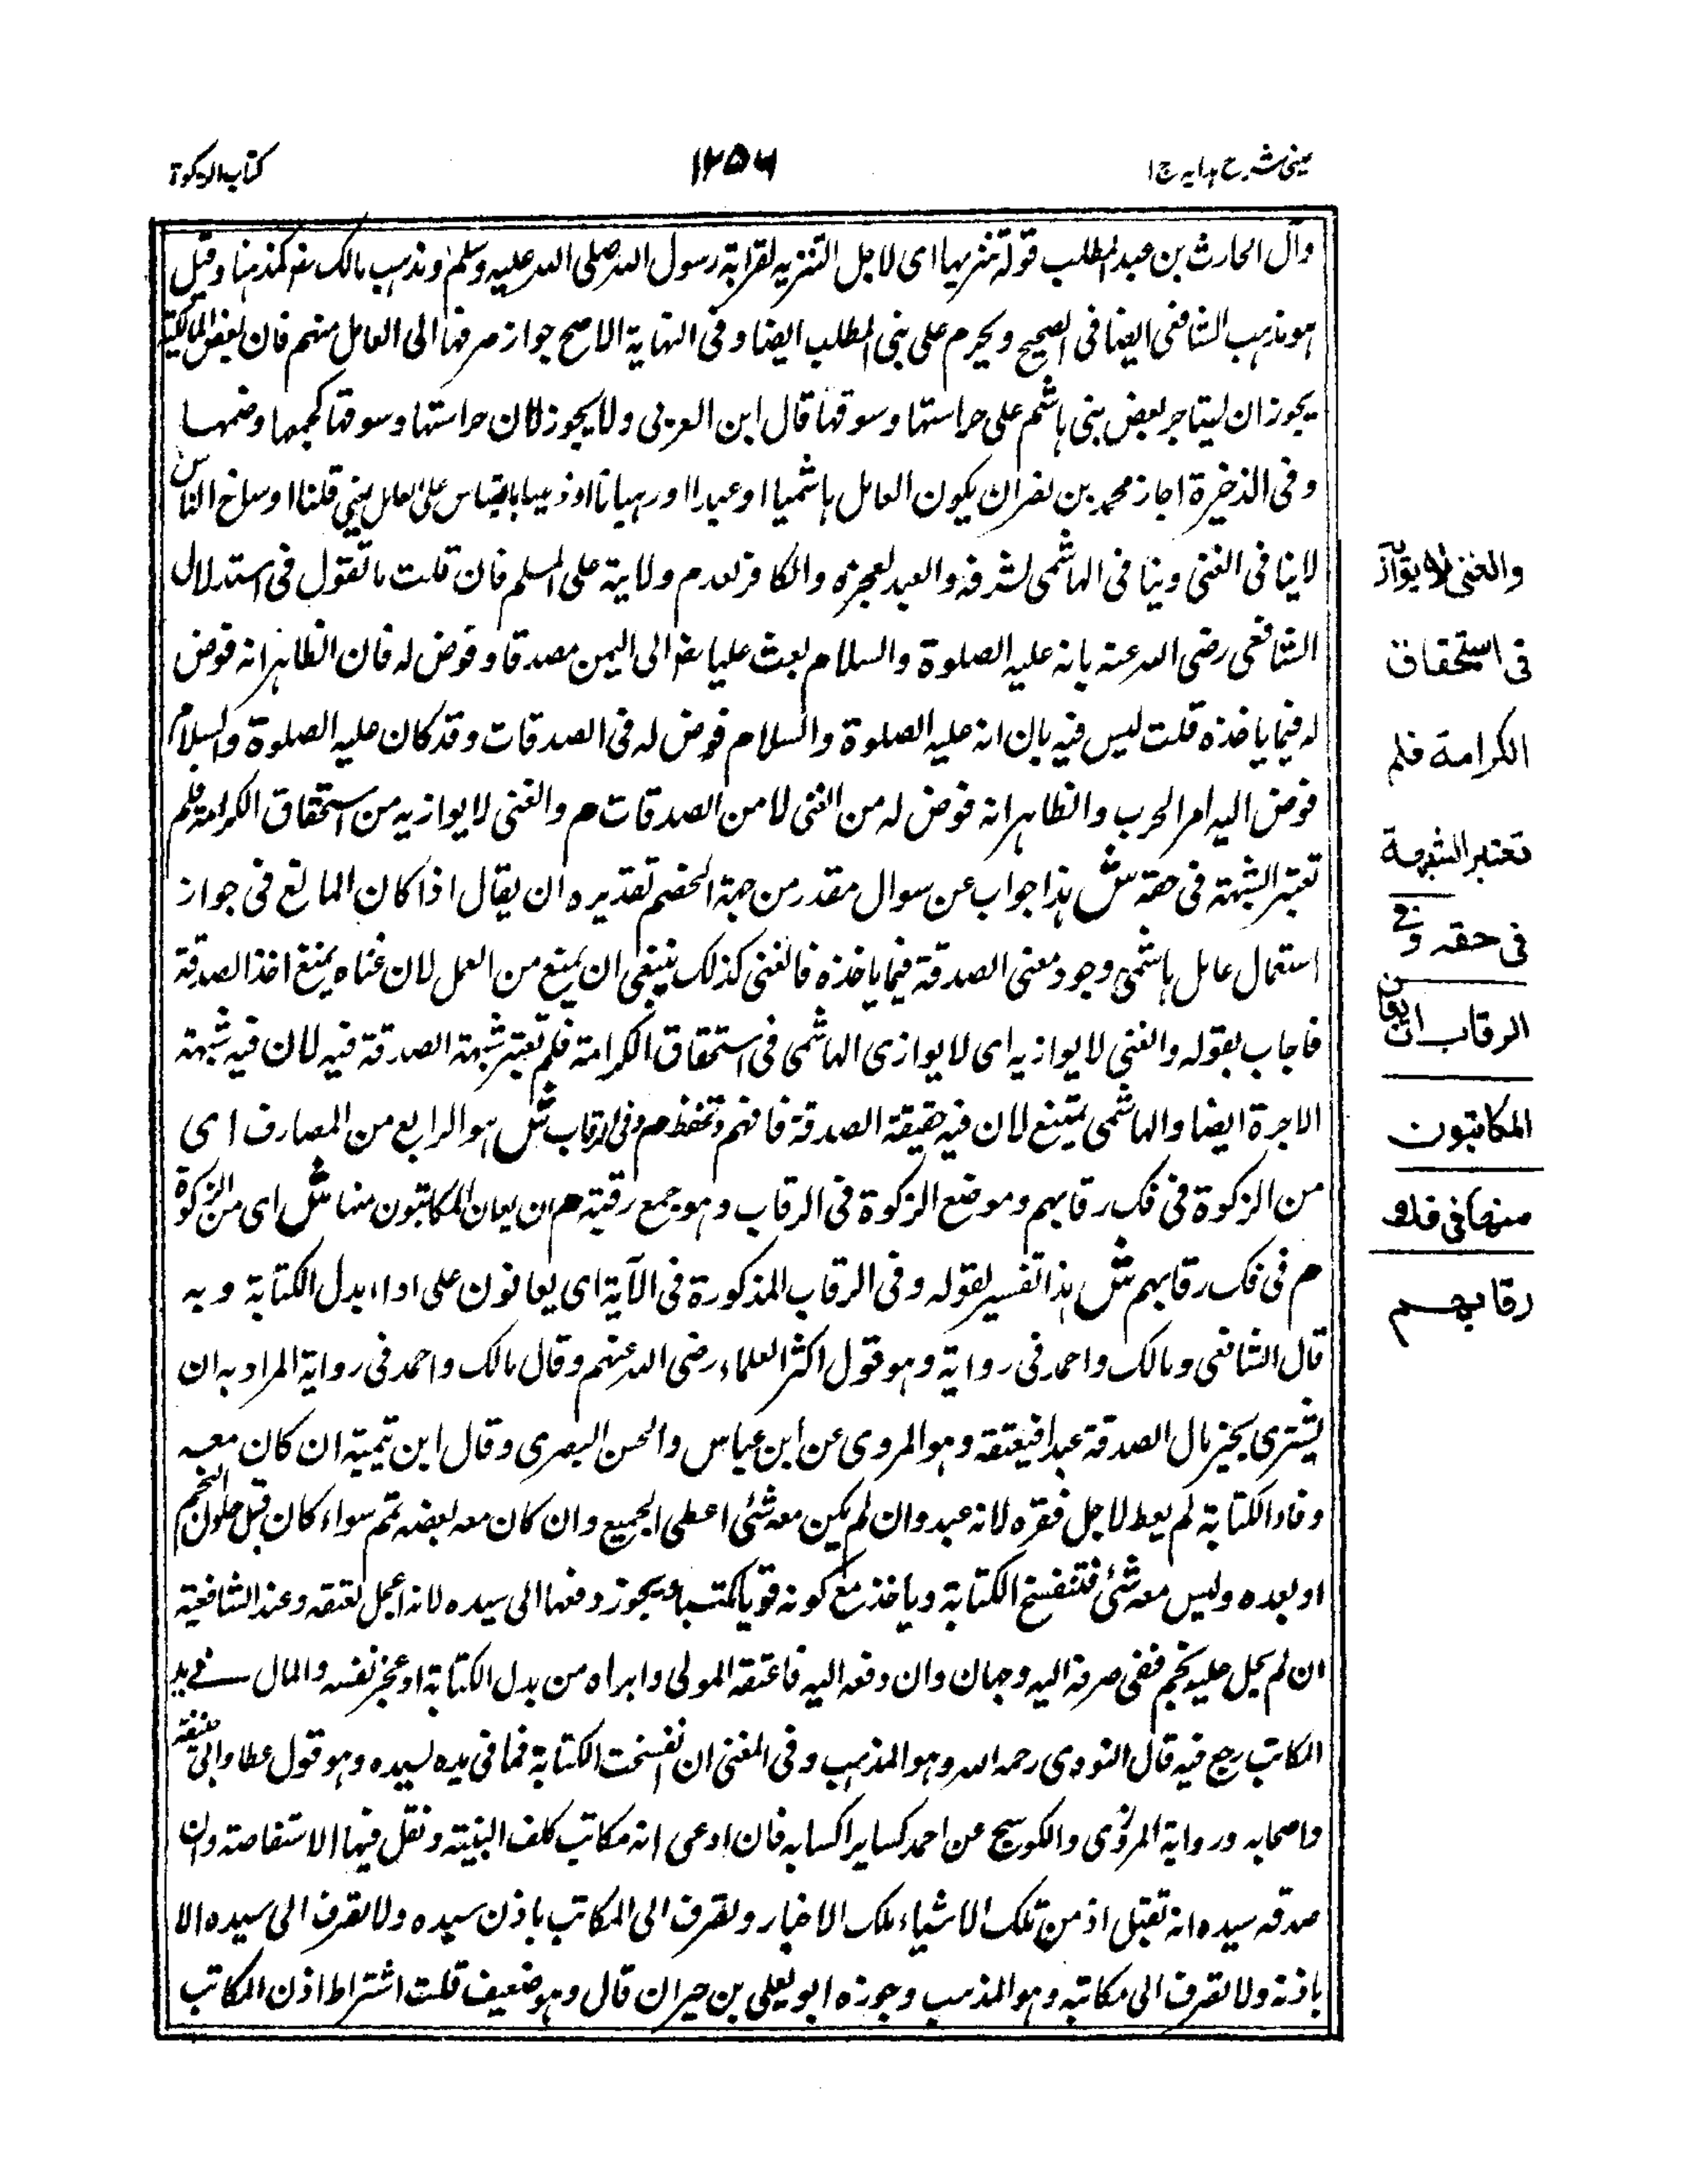 عینی شرح ہدایہ ج۱
۱۲۵۶
كتاب الزكوة
وآل الحارث بن عبد المطلب قوله تنزيها اى لاجل التنزيه لقرابة رسول الله صلى الله عليه وسلم ومذهب مالك رضہ كمذهبنا وقيل
هو مذهب الشافعى ايضا فى الصحيح ويحرم على بنى المطلب ايضا وفى النهاية الاصح جواز صرفها الى العامل منهم فان بعض المالكية
يجوز ان يستاجر بعض بنى هاشم على حراستها وسوقها قال ابن العربى ولا يجوز لان حراستها وسوقها كجمعها وضمها
وفى الذخيرة اجاز محمد بن نصر ان يكون العامل هاشميا او عبدا او رهبانا او ذميا بالقياس على العامل يعنى قلنا اوساخ الناس
لا ينافى الغنى وينافى الهاشمى لشرفه والعبد لعجزه والكافر لعدم ولاية على المسلم فان قلت ما تقول فى استدلال
الشافعى رضى الله عنه بانه عليه الصلوة والسلام بعث عليا رضہ الى اليمن مصدقا وفوض له فان الظاهر انه فوض
له فيما ياخذه قلت ليس فيه بان انه عليه الصلوة والسلام فوض له فى الصدقات وقد كان عليه الصلوة والسلام
فوض اليه امر الحرب والظاهر انه فوض له من الفئ لا من الصدقات م والغنى لا يوازيه من استحقاق الكرامة فلم
تعتبر الشبهة فى حقه ش هذا جواب عن سوال مقدر من جهة الخصم تقديره ان يقال اذا كان المانع فى جواز
استعمال عامل هاشمى وجود معنى الصدقة فيما ياخذه فالغنى كذلك ينبغى ان يمنع من العمل لان غناه يمنع اخذ الصدقة
فاجاب بقوله والغنى لا يوازيه اى لا يوازى الهاشمى فى استحقاق الكرامة فلم تعتبر شبهة الصدقة فيه لان فيه شبهة
الاجرة ايضا والهاشمى يمتنع لان فيه حقيقة الصدقة فافهم وتحفظ م وفى الرقاب ش هو الرابع من المصارف اى
من الزكوة فى فك رقابهم وموضع الزكوة فى الرقاب وهو جمع رقبة م ان يعان المكاتبون منها ش اى من الزكوة
م فى فك رقابهم ش هذا تفسير لقوله وفى الرقاب المذكورة فى الآية اى يعانون على اداء بدل الكتابة وبه
قال الشافعى ومالك واحمد فى رواية وهو قول اكثر العلماء رضى الله عنهم وقال مالك واحمد فى رواية المراد به ان
يشترى بجز مال الصدقة عبدا فيعتقه وهو المروى عن ابن عباس والحسن البصرى وقال ابن تيمية ان كان معه
وفاء الكتابة لم يعط لاجل فقره لانه عبد وان لم يكن معه شئ اعطى الجميع وان كان معه بعضه تمم سواء كان قبل حلول النجم
او بعده وليس معه شئ فتنفسخ الكتابة وياخذ مع كونه قويا مكتسبا ويجوز دفعها الى سيده لانه اعجل لعتقه وعند الشافعية
ان لم يحل عليه نجم ففى صرفه اليه وجهان وان دفعه اليه فاعتقه المولى وابراه من بدل الكتابة او عجز نفسه والمال فى يد
المكاتب رجع فيه قال النووى رحمه الله وهو المذهب وفى المغنى ان انفسخت الكتابة فما فى يده لسيده وهو قول عطا وابى حنيفة
واصحابه ورواية المروزى والكوسج عن احمد كساير اكسابه فان ادعى انه مكاتب كلف البينة ونقل فيها الاستفاضة وان
صدقه سيده انه تقبل اذ من تلك الاشياء ملك الاخبار ولصرف الى المكاتب باذن سيده ولا تصرف الى سيده الا
باذنه ولا تصرف الى مكاتبه وهو المذهب وجوزه ابو يعلى بن حيران قال وهو ضعيف قلت اشتراط اذن المكاتب
والغنى لا يوازيه
فى استحقاق
الكرامة فلم
تعتبر الشبهة
فى حقه وفى
الرقاب ان يعان
المكاتبون
منها فى فك
رقابهم